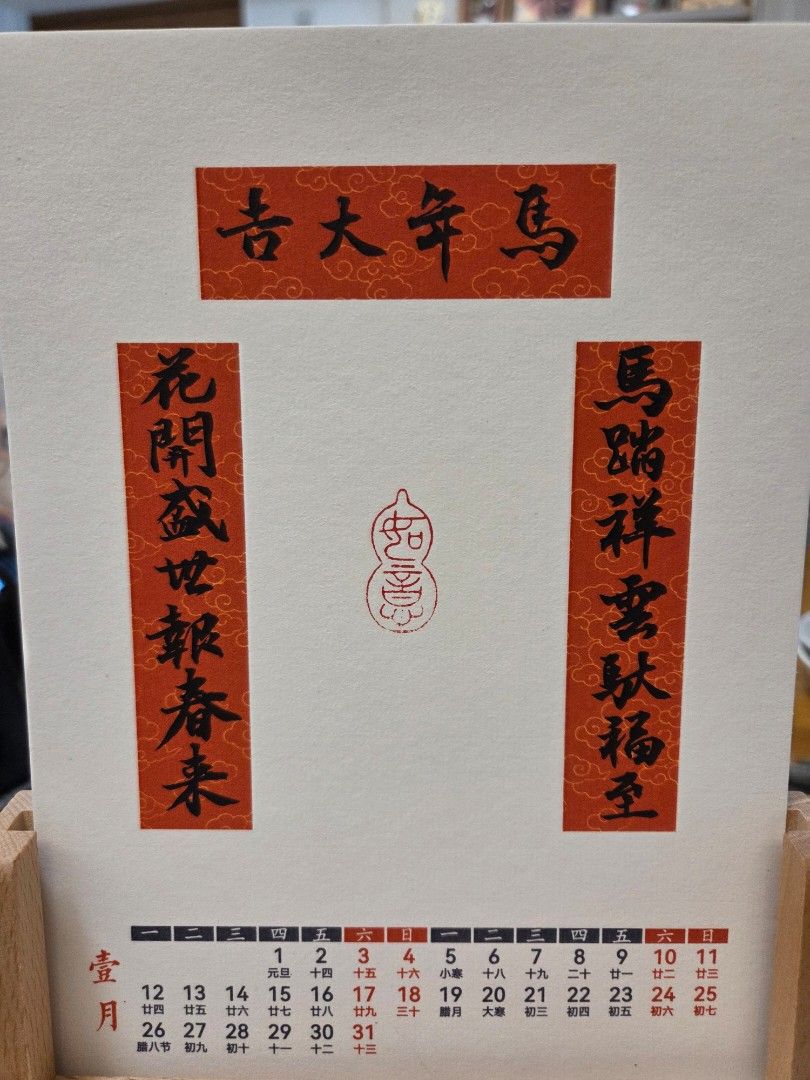 馬年大吉
馬蹋祥雲馱福至
花開盛世報春来
如意
壹月
一 二 三 四 五 六 日 一 二 三 四 五 六 日
1 2 3 4 5 6 7 8 9 10 11
元旦 十四 十五 十六 小寒 十八 十九 二十 廿一 廿二 廿三
12 13 14 15 16 17 18 19 20 21 22 23 24 25
廿四 廿五 廿六 廿七 廿八 廿九 三十 腊月 大寒 初三 初四 初五 初六 初七
26 27 28 29 30 31
腊八节 初九 初十 十一 十二 十三